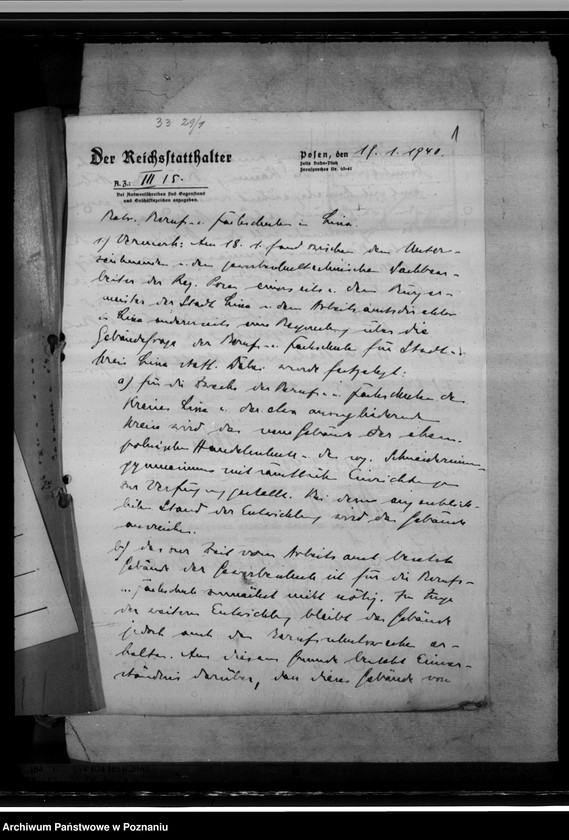 33 29/1
1
Der Reichsstatthalter
Posen, den 19.1.1940.
Felix Dahn-Platz
Fernsprecher Nr. 40-41
A.Z.: III 15.
Bei Antwortschreiben sind Gegenstand
und Geschäftszeichen anzugeben.
Betr. Berufs- u. Fachschulen in Lissa.
1) Vermerk: Am 18.1. fand zwischen dem Unter-
zeichnenden u. dem gewerbeschultechnischen Sachbear-
beiter der Reg. Posen einerseits u. dem Bürger-
meister der Stadt Lissa u. dem Arbeitsamtsdirektor
in Lissa andererseits eine Besprechung über die
Gebäudefrage der Berufs- u. Fachschule für Stadt- u.
Kreis Lissa statt. Dabei wurde festgelegt:
a) für die Zwecke der Berufs- u. Fachschulen des
Kreises Lissa u. der alten
Kreise wird das neue Gebäude der ehem.
polnischen Handelsschule u. des sog. Schneiderinnen-
gymnasiums mit sämtlichen Einrichtungen
zur Verfügung gestellt. Bei dem augenblick-
lichen Stand der Entwicklung wird das Gebäude
ausreichen.
b) das zur Zeit vom Arbeitsamt besetzte
Gebäude der Gewerbeschule ist für die Berufs-
Fachschule zunächst nicht nötig. Im Zuge
der weiteren Entwicklung bleibt das Gebäude
jedoch auch den Berufsschulzwecken er-
halten. Aus diesem Grunde besteht Einver-
ständnis darüber, dass dieses Gebäude von
Archiwum Państwowe w Poznaniu